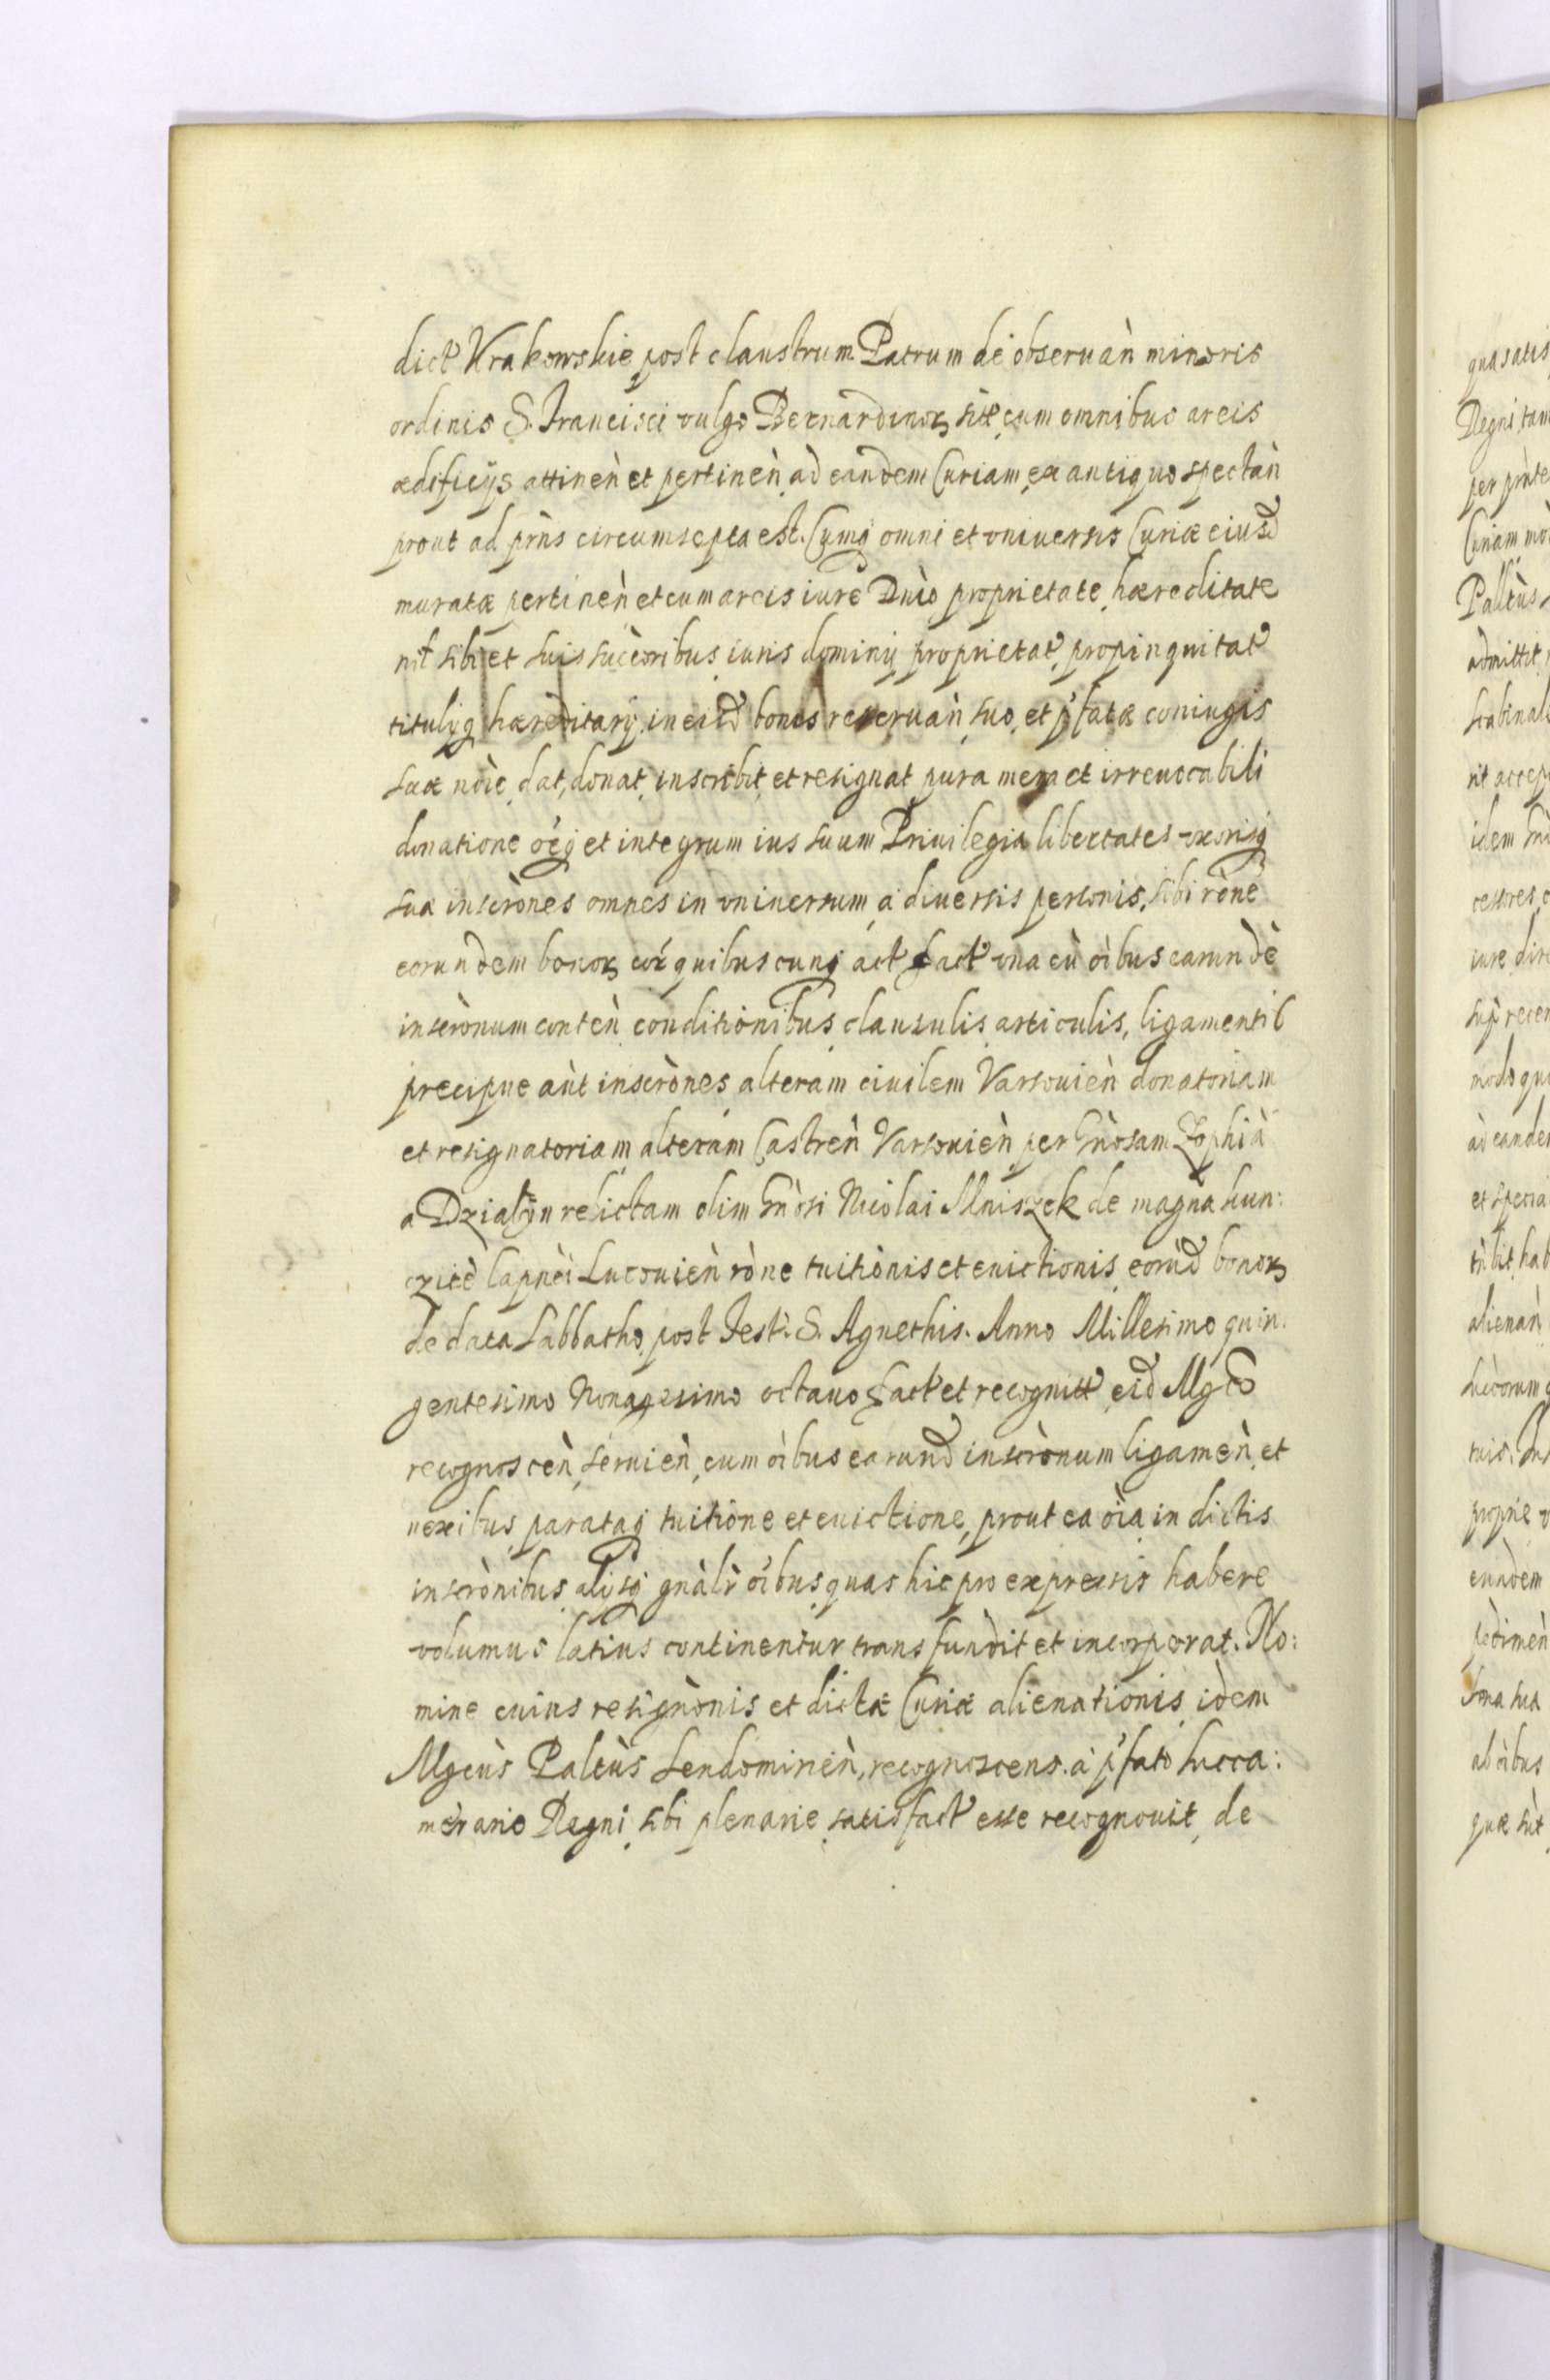 dict Krakowskie post claustrum Patrum de obseruan̄ minoris
ordinis S. Francisci vulgo Bernardinoꝝ sitæ cum omnibus areis
ædificijs attinen̄ et pertinen̄ ad eandem Curiam ex antiquo spectan̄
prout ad prn̄s circumsepta est. Cumqꝫ omni et vniuersis Curiæ eiusd
muratæ pertinen̄ et cum areis iure Dn̄io proprietate hæreditate
nil sibi et suis succ̄oribus iuris dominij proprietat propinquitat
titulijqꝫ hæreditarij in eisd bonis reseruan̄ suo et p̄fatæ coniugis
suæ no̅ie dat, donat inscribit et resignat pura mera et irreuocabili
donatione o̅eqꝫ et integrum ius suum Priuilegia libertates vxorisqꝫ
suæ inscr̄ones omnes in vniuersum a diuersis personis, sibi r̄one
eorundem bonoꝝ cor̄ quibuscunqꝫ act fact vna cū o̅ibus earundē
inscr̄onum conten̄ conditionibus clausulis articulis, ligamentis
precipue aūt inscr̄ones alteram ciuilem Varsouien̄ donatoriam
et resignatoriam alteram Castren̄ Varsouien̄ per Gn̄osam Zophiā
a Dzialÿn relictam olim Gn̄osi Nicolai Mniszek de magna kun:
czicē Capn̄ei Lucouien̄ r̄one tuitionis et euictionis eorūd bonoꝝ
de data Sabbatho post Fest: S. Agnethis. Anno Millesimo quin:
gentesimo Nonagesimo octauo fact et recognitt eid Mgco
recognoscen̄ seruien̄ cum o̅ibus earund inscr̄onum ligamen̄ et
nexibus parataqꝫ tuitione et euictione, prout ea o̅ia in dictis
inscr̄onibus alijsqꝫ gn̄alr̄ o̅ibus quas hic pro expressis habere
volumus latius continentur transfundit et incorporat. No:
mine cuius resign̄onis et dictæ Curiæ alienationis idem
Mgcus Paltūs Sendomirien̄, recognoscens a p̄fato Succa:
merario Regni sibi plenarie satisfact esse recognouit de